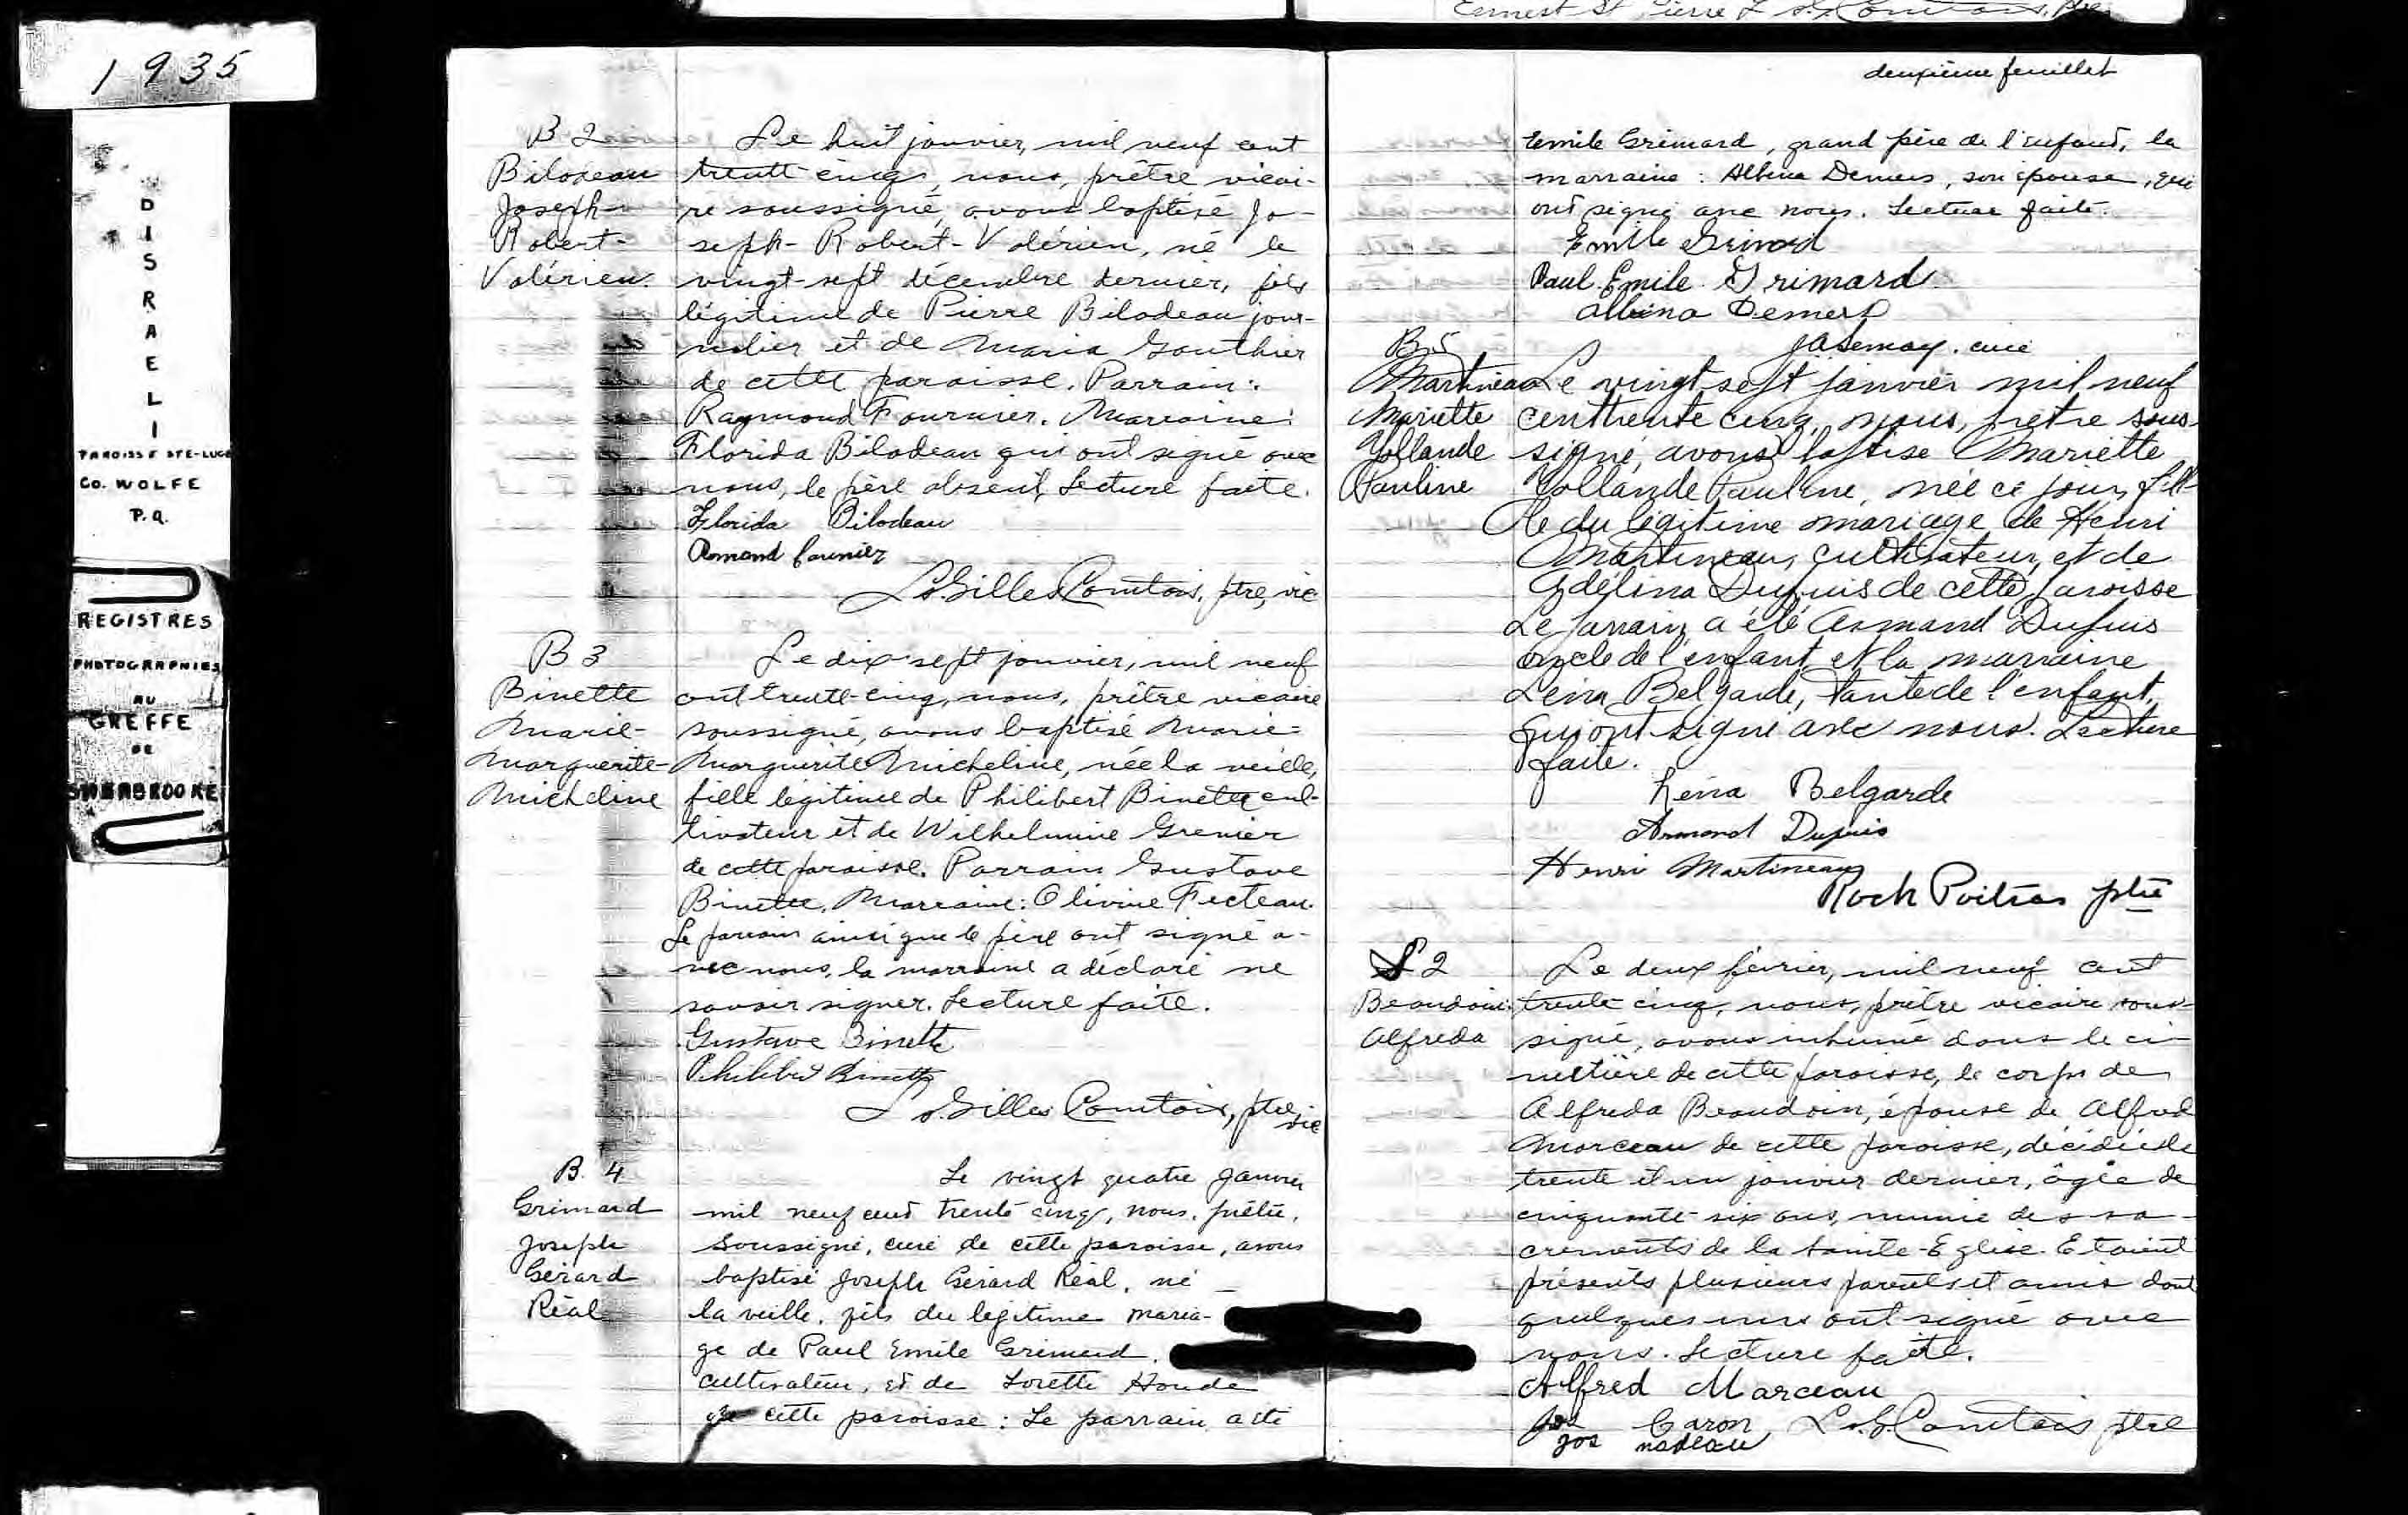 1935
DISRAELI
PAROISSE STE-LUCE
CO. WOLFE
P.Q.
REGISTRES
PHOTOGRAPHIES
AU
GREFFE
DE
SHERBROOKE
B 2
Bilodeau
Joseph-
Robert-
Valérien.
Le huit janvier, mil neuf cent
trente-cinq, nous, prêtre vicai-
re soussigné, avons baptisé Jo-
seph-Robert-Valérien, né le
vingt-sept décembre dernier, fils
légitime de Pierre Bilodeau jour-
nalier et de Maria Gouthier
de cette paroisse. Parrain:
Raymond Fournier. Marraine:
Florida Bilodeau qui ont signé avec
nous, le père absent, Lecture faite.
Florida Bilodeau
Armand Fournier
Ls. Gilles Comtois, ptre, vic
B 3
Binette
Marie-
Marguerite-
Micheline
Le dix-sept janvier, mil neuf
cent trente-cinq, nous, prêtre vicaire
soussigné, avons baptisé Marie-
Marguerite Micheline, née la veille,
fille légitime de Philibert Binette cul-
tivateur et de Wilhelmine Grenier
de cette paroisse. Parrain Gustave
Binette. Marraine: Olivine Fecteau.
Le parrain ainsi que le père ont signé a-
vec nous, la marraine a déclaré ne
savoir signer. Lecture faite.
Gustave Binette
Philibert Binette
Ls. Gilles Comtois, ptre, vic
B. 4
Grimard
Joseph
Gérard
Réal
Le vingt quatre Janvier
mil neuf cent trente cinq, nous, prêtre,
soussigné, curé de cette paroisse, avons
baptisé Joseph Gérard Réal, né
la veille, fils du légitime maria-
ge de Paul Emile Grimard,
cultivateur, et de Lorette Houde
de cette paroisse: Le parrain a été
Ernest St Pierre Ls. G. Comtois, Ptre
deuxième feuillet
Emile Grimard, grand père de l'enfant, la
marraine: Albina Demers, son épouse, qui
ont signé avec nous. Lecture faite.
Emile Grimard
Paul Emile Grimard
Albina Demers
JA Lemay, curé
B 5
Martineau
Mariette
Yollande
Pauline
Le vingt sept janvier mil neuf
cent trente cinq, nous, prêtre sous-
signé, avons baptisé Mariette
Yollande Pauline, née ce jour, fil-
le du légitime mariage de Henri
Martineau, cultivateur, et de
Adélina Dupuis de cette paroisse
Le parrain a été Armand Dupuis
oncle de l'enfant, et la marraine
Léna Belgarde, tante de l'enfant,
qui ont signé avec nous. Lecture
faite.
Léna Belgarde
Armand Dupuis
Henri Martineau
Roch Poitras ptre
S 2
Beaudoin:
Alfreda
Le deux février, mil neuf cent
trente-cinq, nous, prêtre vicaire sous-
signé, avons inhumé dans le ci-
metière de cette paroisse, le corps de
Alfreda Beaudoin, épouse de Alfred
Marceau de cette paroisse, décédée le
trente et un janvier dernier, âgée de
cinquante-six ans, munie des sa-
crements de la Sainte-Eglise. Etaient
présents plusieurs parents et amis dont
quelques uns ont signé avec
nous. Lecture faite.
Alfred Marceau
Jos Caron Ls. G. Comtois ptre
Jos nadeau